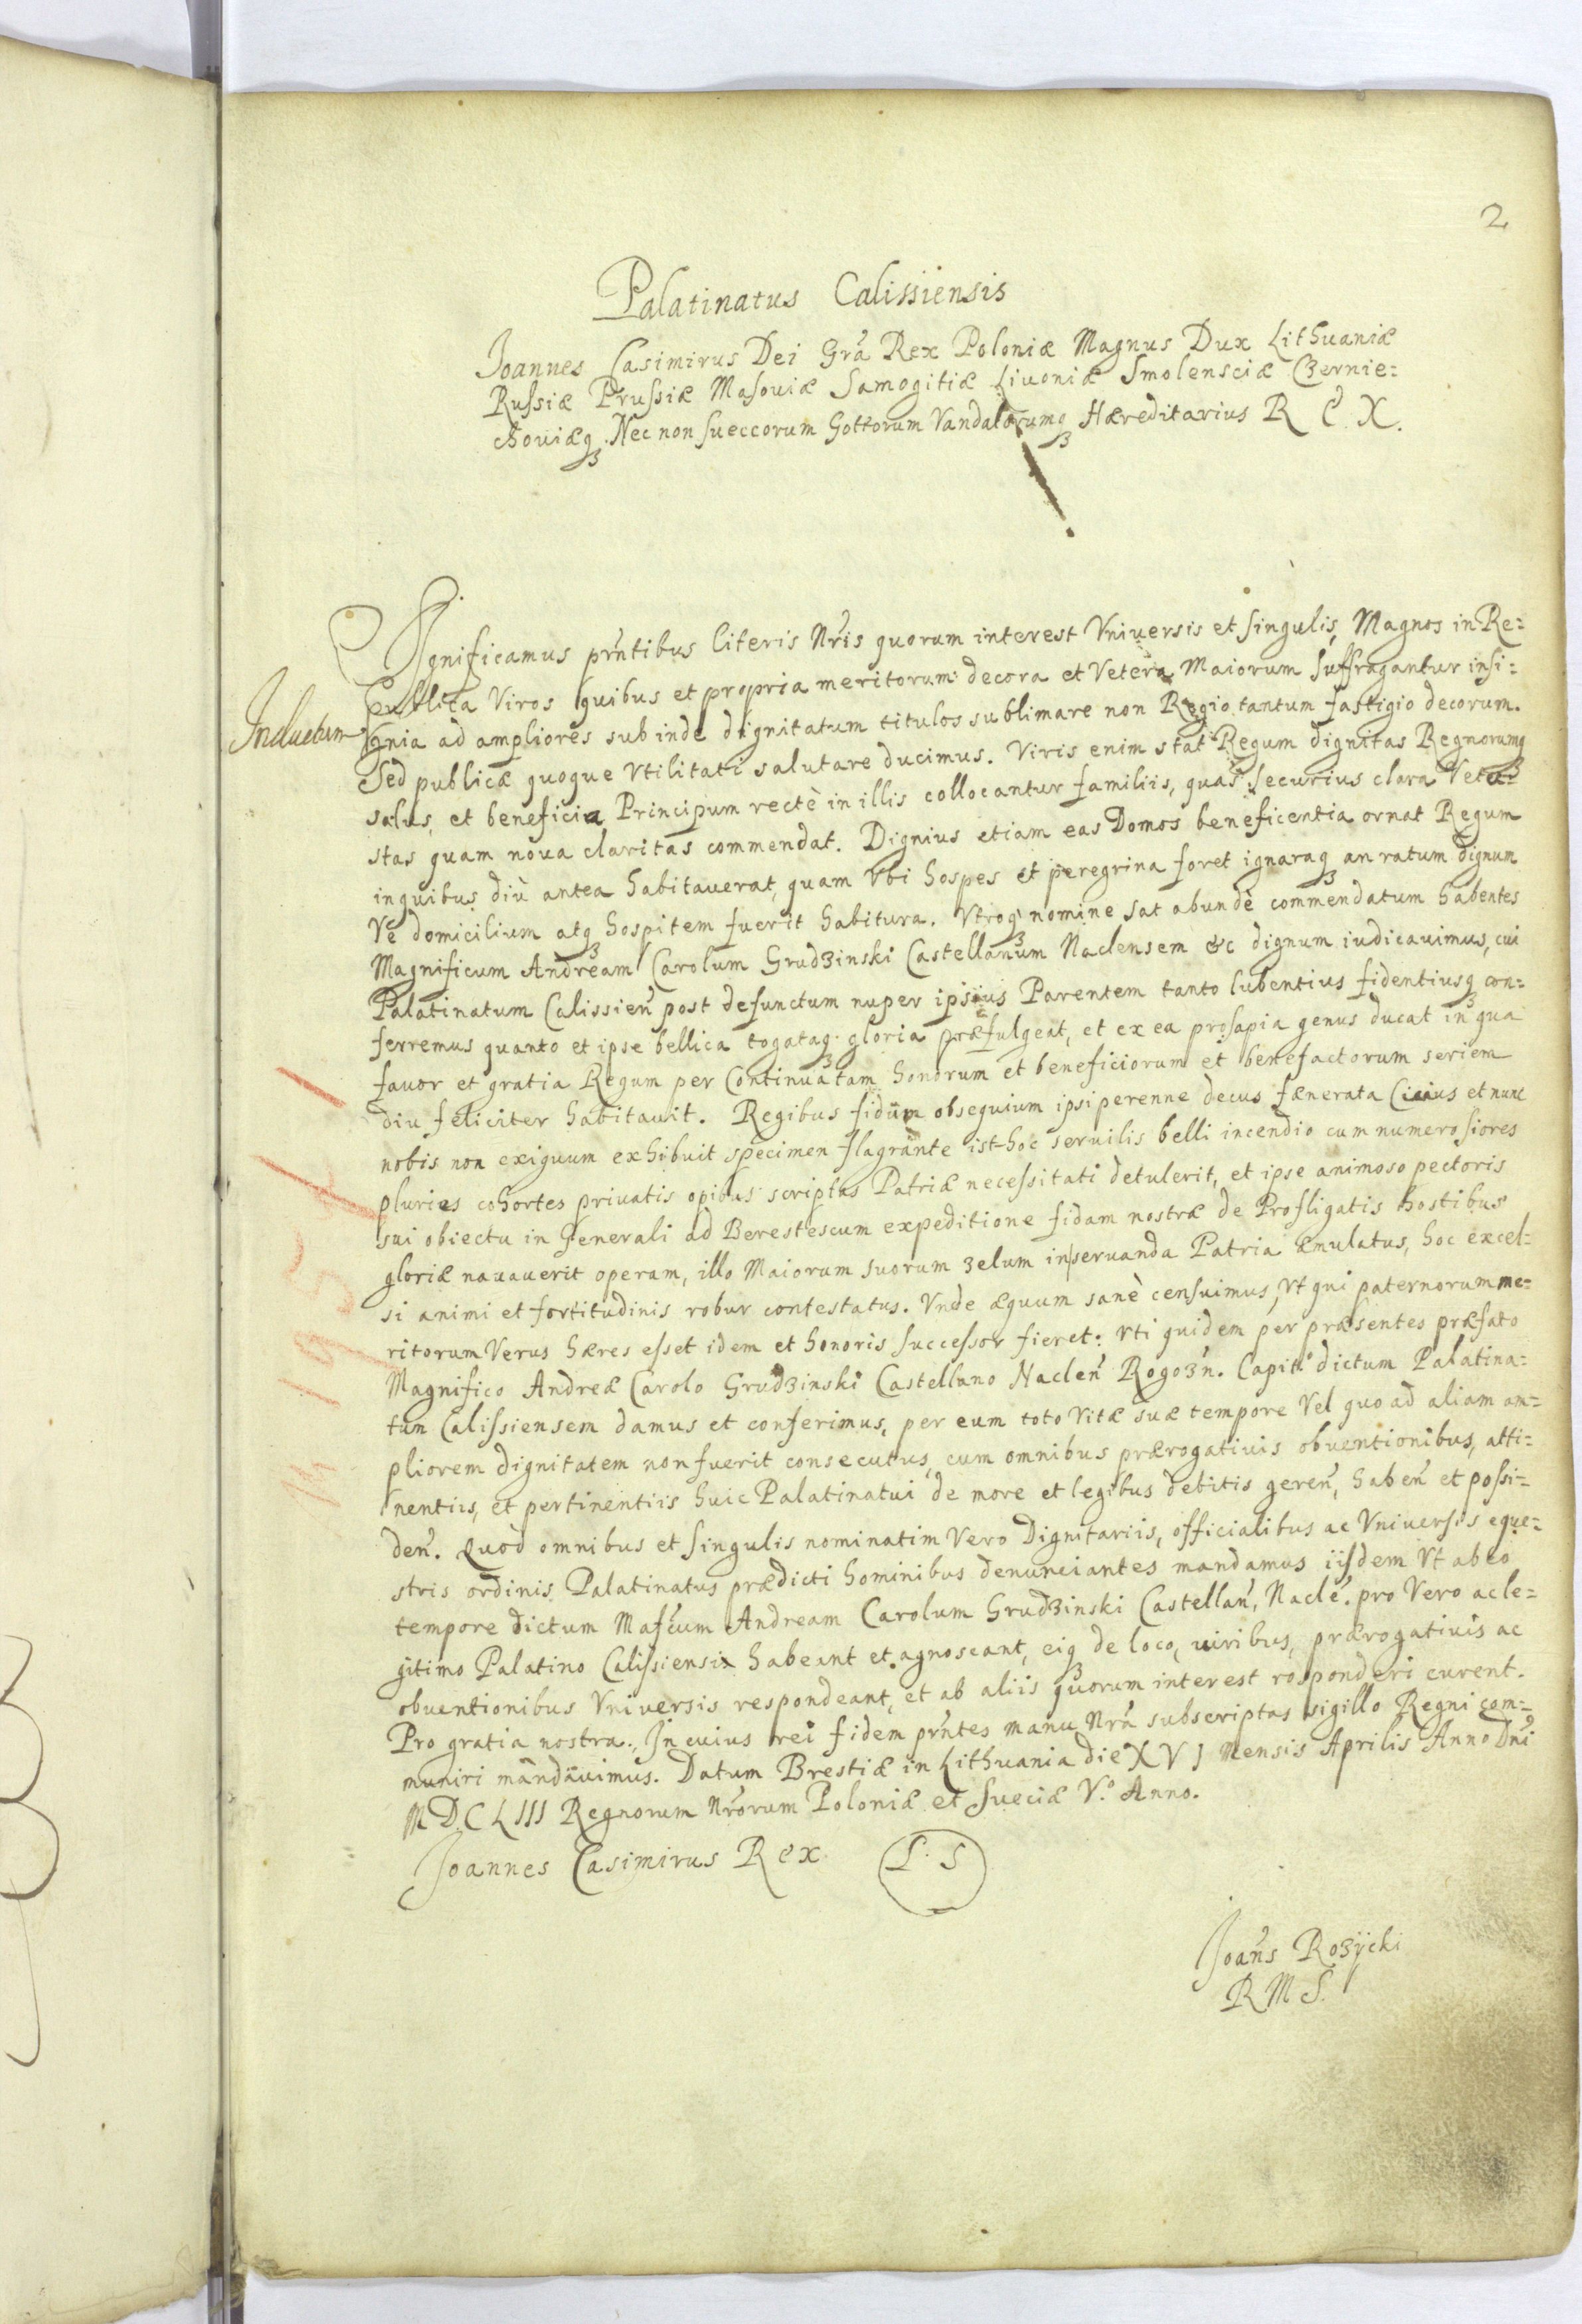 2
Palatinatus Calissiensis
Joannes Casimirus Dei Gra Rex Poloniæ Magnus Dux Lithuaniæ
Russiæ Prussiæ Masouiæ Samogitiæ Liuoniæ Smolensciæ Czernie=
chouiæq3 Nec non Sueccorum Gottorum Vandalorumq3 Hæreditarius R E X.
Significamus prntibus literis Nris quorum interest Vniversis et singulis, Magnos in Re=
publica Viros quibus et propria meritorum decora et Vetera Maiorum suffragantur insi=
Inductum
gnia ad ampliores subinde dignitatum titulos sublimare non Regio tantum fastigio decorum.
Sed publicæ quoque Vtilitati salutare ducimus. Viris enim stat Regum dignitas Regnorumq3
salus, et beneficia Principum rectè in illis collocantur familiis, quas securius clara Vetu=
stas quam noua claritas commendat. Dignius etiam eas Domos beneficentia ornat Regum
inquibus diù antea habitauerat, quam Vbi hospes et peregrina foret ignaraq3 an ratum dignum
Vè domicilium atq3 hospitem fuerit habitura. Vtroq3 nomine sat abundè commendatum habentes
Magnificum Andream Carolum Grudzinski Castellanum Naclensem &c dignum iudicauimus, cui
Palatinatum Calissien post defunctum nuper ipsius Parentem tanto lubentius fidentiusq3 con=
ferremus quanto et ipse bellica togataq3 gloria præfulgeat, et ex ea prosapia genus ducat in qua
fauor et gratia Regum per Continuatam honorum et beneficiorum et benefactorum seriem
diu feliciter habitauit. Regibus fidum obsequium ipsi perenne decus fænerata Cuius et nunc
nobis non exiguum exhibuit specimen flagrante ist-hoc seruilis belli incendio cum numerosiores
pluries cohortes priuatis opibus scriptas Patriæ necessitati detulerit, et ipse animoso pectoris
sui obiectu in Generali ad Berestescum expeditione fidam nostræ de Profligatis hostibus
gloriæ nauauerit operam, illo Maiorum suorum zelum inseruanda Patria æmulatus, hoc excel=
si animi et fortitudinis robur contestatus. Vnde æquum sanè censuimus, Vt qui paternorum me=
ritorum Verus hæres esset idem et honoris successor fieret: Vti quidem per præsentes præfato
Magnifico Andreæ Carolo Grudzinski Castellano Naclen Rogozn. Capito dictum Palatina=
tum Calissiensem damus et conferimus, per eum toto Vitæ suæ tempore Vel quoad aliam am=
pliorem dignitatem non fuerit consecutus, cum omnibus prærogatiuis obuentionibus, atti=
nentiis, et pertinentiis huic Palatinatui de more et legibus debitis geren, haben et possi=
den. Quod omnibus et Singulis nominatim Vero Dignitariis, officialibus ac Vniuersis eque=
stris ordinis Palatinatus prædicti hominibus denunciantes mandamus iisdem Vt ab eo
tempore dictum Mafcum Andream Carolum Grudzinski Castellan, Nacle. pro Vero ac le=
gitimo Palatino Calissiensi habeant et agnoscant, eiq3 de loco, uiribus, prærogatiuis ac
obuentionibus Vniuersis respondeant, et ab aliis quorum interest responderi curent.
Pro gratia nostra. In cuius rei fidem prntes manu Nra subscriptas sigillo Regni com=
muniri mandauimus. Datum Brestiæ in Lithuania die XVI Mensis Aprilis Anno Dni
MDCLIII Regnorum Nrorum Poloniæ et Sueciæ V.o Anno.
Joannes Casimirus Rex L. S
Joans Rozycki
R M S.